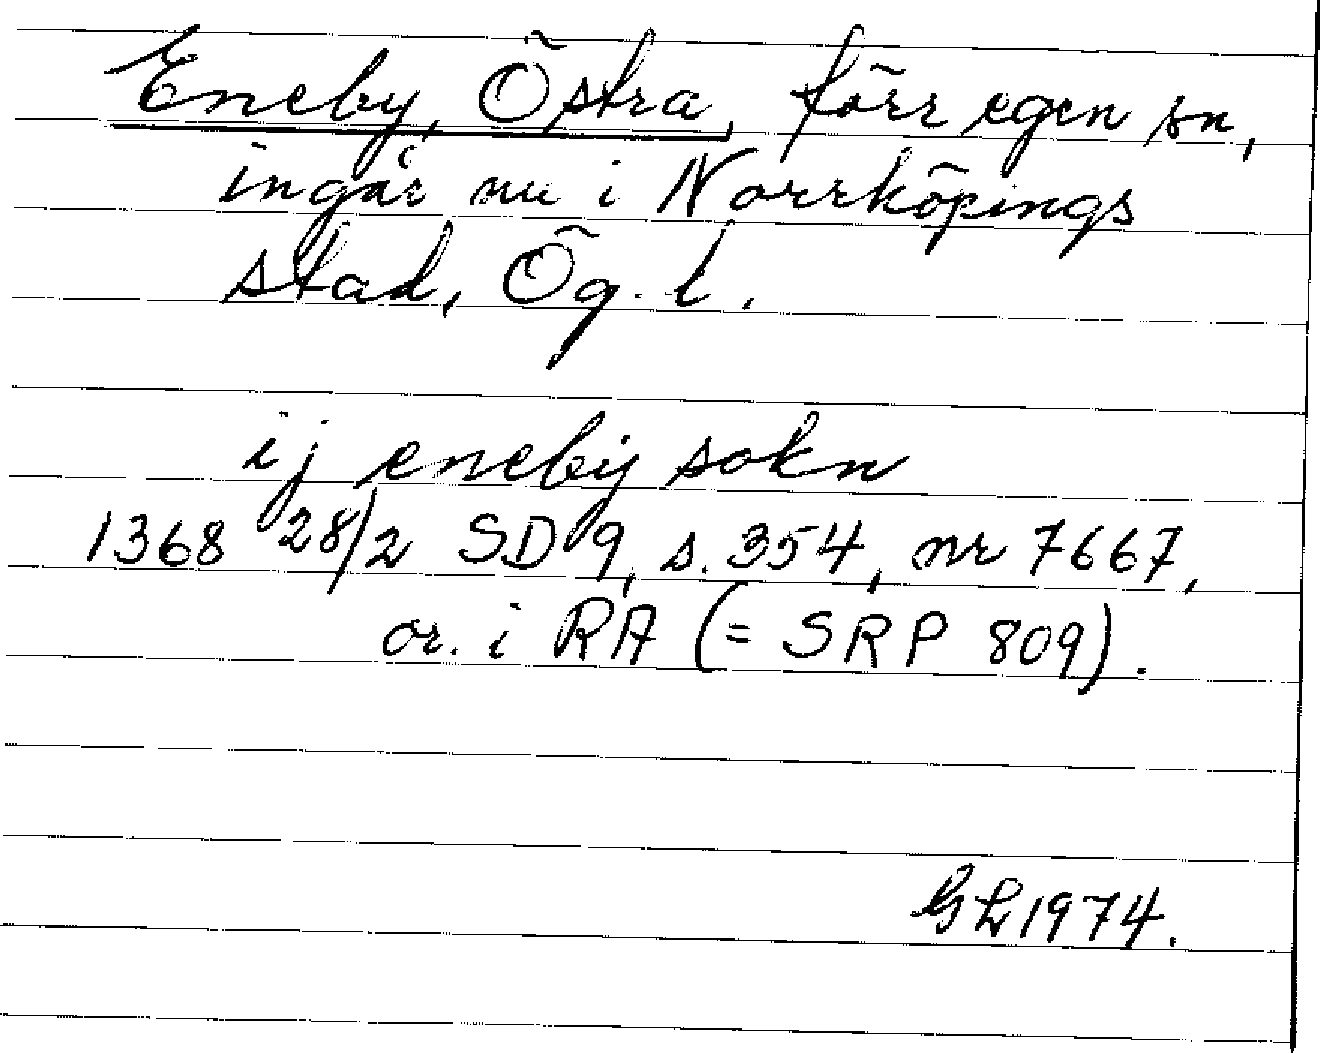 Eneby, Östra, förr egen sn,
ingår nu i Norrköpings
stad, Ög. l.
ij eneby sokn
1368 28/2 SD 9, s. 354, nr 7667,
or. i RA (= SRP 809).
GL 1974.